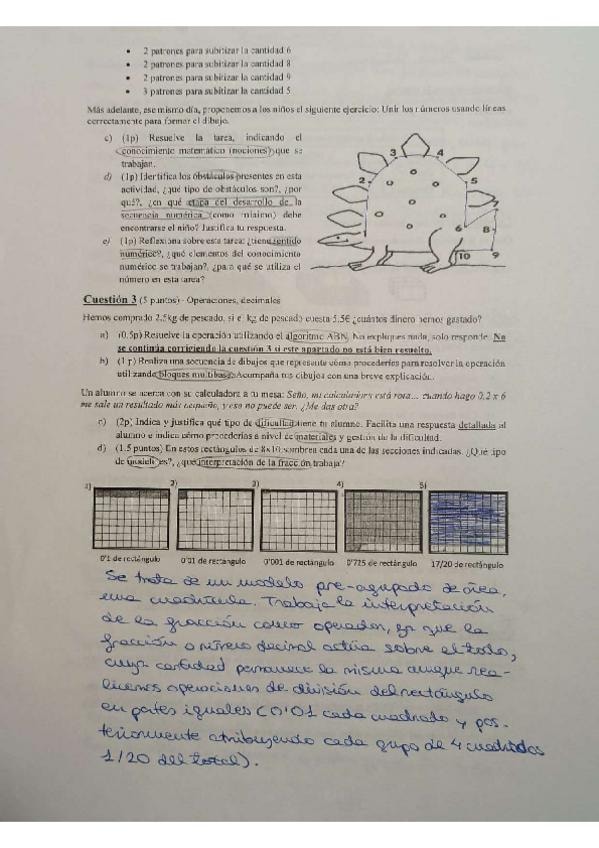 • 2 patrones para subitizar la cantidad 6
• 2 patrones para subitizar la cantidad 8
• 2 patrones para subitizar la cantidad 9
• 3 patrones para subitizar la cantidad 5
Más adelante, ese mismo día, proponemos a los niños el siguiente ejercicio: Unir los números usando líneas
correctamente para formar el dibujo.
c) (1p) Resuelve la tarea, indicando el
conocimiento matemático (nociones) que se
trabajan.
d) (1p) Identifica los obstáculos presentes en esta
actividad, ¿qué tipo de obstáculos son?, ¿por
qué?, ¿en qué etapa del desarrollo de la
secuencia numérica (como mínimo) debe
encontrarse el niño? Justifica tu respuesta.
e) (1p) Reflexiona sobre esta tarea: ¿tiene sentido
numérico?, ¿qué elementos del conocimiento
numérico se trabajan?, ¿para qué se utiliza el
número en esta tarea?
2
3
4
5
6
8
10
9
Cuestión 3 (5 puntos) - Operaciones, decimales
Hemos comprado 2,5kg de pescado, si el kg de pescado cuesta 5,5€ ¿cuántos dinero hemos gastado?
a) (0.5p) Resuelve la operación utilizando el algoritmo ABN. No expliques nada, solo responde. No
se continúa corrigiendo la cuestión 3 si este apartado no está bien resuelto.
b) (1p) Realiza una secuencia de dibujos que represente cómo procederías para resolver la operación
utilizando bloques multibase. Acompaña tus dibujos con una breve explicación.
Un alumno se acerca con su calculadora a tu mesa: Seño, mi calculadora está rota... cuando hago 0,2 x 6
me sale un resultado más pequeño, y eso no puede ser. ¿Me das otra?
c) (2p) Indica y justifica qué tipo de dificultad tiene tu alumno. Facilita una respuesta detallada al
alumno e indica cómo procederías a nivel de materiales y gestión de la dificultad.
d) (1.5 puntos) En estos rectángulos de 8x10 sombrea cada una de las secciones indicadas. ¿Qué tipo
de modelo es?, ¿qué interpretación de la fracción trabaja?
1) 2) 3) 4) 5)
0'1 de rectángulo 0'01 de rectángulo 0'001 de rectángulo 0'725 de rectángulo 17/20 de rectángulo
Se trata de un modelo pre-agrupado de área,
una cuadrícula. Trabaja la interpretación
de la fracción como operador, ya que la
fracción o número decimal actúa sobre el todo,
cuya cantidad permanece la misma aunque rea-
licemos operaciones de división del rectángulo
en partes iguales (0'01 cada cuadrado y pos-
teriormente atribuyendo cada grupo de 4 cuadrados
1/20 del total).